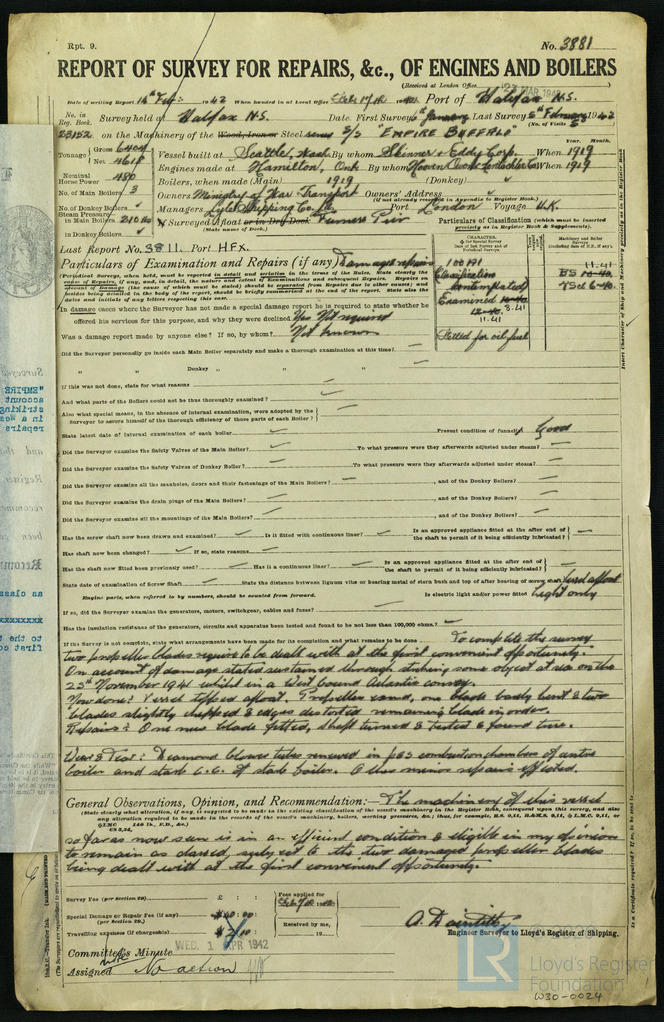 Rpt. 9.
No. 3881
REPORT OF SURVEY FOR REPAIRS, &c., OF ENGINES AND BOILERS
(Received at London Office MAR 1942
Date of writing Report 14th Feb: 1942 When handed in at Local Office Port of Halifax N.S.
No. in Reg. Book. Survey held at Halifax N.S. Date: First Survey 6th January Last Survey 5th February 1942
(No. of Visits 5)
23152 on the Machinery of the Wood, Iron or Steel S/S "EMPIRE BUFFALO"
Tonnage Gross 6404
Net 4618
Vessel built at Seattle, Wash. By whom Skinner & Eddy Corp. When 1919
Engines made at Hamilton, Ont. By whom Hooven Owens Rentschler Co When 1919
Nominal Horse Power 490
Boilers, when made (Main) 1919 (Donkey) ✓
No. of Main Boilers 3
Owners Ministry of War Transport Owners' Address
(if not already recorded in Appendix to Register Book)
No. of Donkey Boilers ✓
Managers Lyle Shipping Co. Ltd Port London Voyage U.K.
Steam Pressure in Main Boilers 210 lbs
If Surveyed Afloat or in Dry Dock Furness Pier
(State name of Dock.)
in Donkey Boilers ✓
Particulars of Classification (which must be inserted precisely as in Register Book & Supplements).
Last Report No. 3811. Port HFX.
Particulars of Examination and Repairs (if any) Damage repairs
(Periodical Surveys, when held, must be reported in detail and seriatim in the terms of the Rules. State clearly the cause of Repairs, if any, and, in detail, the nature and extent of Examinations and subsequent Repairs. Repairs on account of Damage (the cause of which must be stated) should be separated from Repairs due to other causes; and besides being detailed in the body of the report, should be briefly summarised at the end of the report. State also the dates and initials of any letters respecting this case.
CHARACTER.
100A1
Classification
contemplated
Examined
12.40. 3.41
11.41
Fitted for oil fuel
11.41
BS 10.40.
TSCL 6.40.
In damage cases where the Surveyor has not made a special damage report he is required to state whether he
offered his services for this purpose, and why they were declined. Yes Not required
Was a damage report made by anyone else? If so, by whom? Not known
Did the Surveyor personally go inside each Main Boiler separately and make a thorough examination at this time? —
" " Donkey " " " —
If this was not done, state for what reasons
And what parts of the Boilers could not be thus thoroughly examined?
Also what special means, in the absence of internal examination, were adopted by the
Surveyor to assure himself of the thorough efficiency of those parts of each Boiler?
State latest date of internal examination of each boiler Present condition of funnel(s) Good
Did the Surveyor examine the Safety Valves of the Main Boiler? To what pressure were they afterwards adjusted under steam?
Did the Surveyor examine the Safety Valves of Donkey Boiler? To what pressure were they afterwards adjusted under steam?
Did the Surveyor examine all the manholes, doors and their fastenings of the Main Boilers? , and of the Donkey Boilers?
Did the Surveyor examine the drain plugs of the Main Boilers? , and of the Donkey Boilers?
Did the Surveyor examine all the mountings of the Main Boilers? , and of the Donkey Boilers?
Has the screw shaft now been drawn and examined? Is it fitted with continuous liner? Is an approved appliance fitted at the after end of the shaft to permit of it being efficiently lubricated?
Has shaft now been changed? If so, state reasons
Has the shaft now fitted been previously used? Has it a continuous liner? Is an approved appliance fitted at the after end of the shaft to permit of it being efficiently lubricated?
State date of examination of Screw Shaft State the distance between lignum vitæ or bearing metal of stern bush and top of after bearing of screw shaft Vessel afloat
Engine parts, when referred to by numbers, should be counted from forward. Is electric light and/or power fitted Light only
If so, did the Surveyor examine the generators, motors, switchgear, cables and fuses?
Has the insulation resistance of the generators, circuits and apparatus been tested and found to be not less than 100,000 ohms?
If the Survey is not complete, state what arrangements have been made for its completion and what remains to be done To complete the survey
two propeller blades require to be dealt with at the first convenient opportunity.
On account of damage stated sustained through striking some object at sea on the
25th November 1941 whilst in a West bound Atlantic convoy.
Now done: Vessel tipped afloat. Propeller exmd, one blade badly bent & two
blades slightly chipped & edges distorted remaining blade in order.
Repairs: One new blade fitted, shaft turned & tested & found true.
Wear & Tear: Diamond blower tubes renewed in combustion chambers of centre
boiler and starb. C.C. of starb boiler. Other minor repairs effected.
General Observations, Opinion, and Recommendation:— The machinery of this vessel
(State clearly what alteration, if any, is suggested to be made in the existing classification of the vessel's machinery in the Register Book, consequent upon this survey, and also
any alteration required to be made in the records of the vessel's machinery, boilers, working pressures, &c.;
so far as now seen is in an efficient condition & eligible in my opinion
to remain as classed, subject to the two damaged propeller blades
being dealt with at the first convenient opportunity.
Survey Fee (per Section 29) £ : :
Special Damage or Repair Fee (if any) $40.00 :
(per Section 29.)
Travelling expenses (if chargeable) $2/10 :
Fees applied for
Received by me,
19
A. Daintith
Engineer Surveyor to Lloyd's Register of Shipping.
Committee's Minute WED. 1 APR 1942
Assigned No action
Lloyd's Register
Foundation
W30-0024